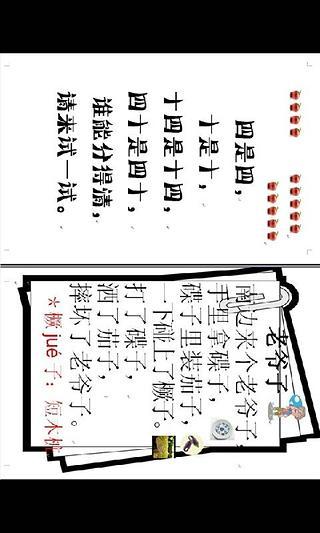 四是四，
十是十，
十四是十四，
四十是四十，
谁能分得清，
请来试一试。
老爷子
南边来个老爷子，
手里拿碟子，
碟子里装茄子，
一下碰上了橛子。
打了碟子，
洒了茄子，
摔坏了老爷子。
*橛 jué 子：短木桩